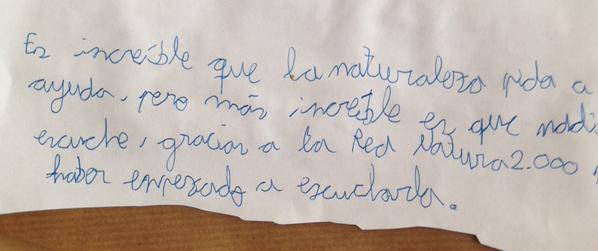 Es increíble que la naturaleza pida a
ayuda, pero más increíble es que nadi
escuche, gracias a la Red Natura 2.000
haber empezado a escucharla.